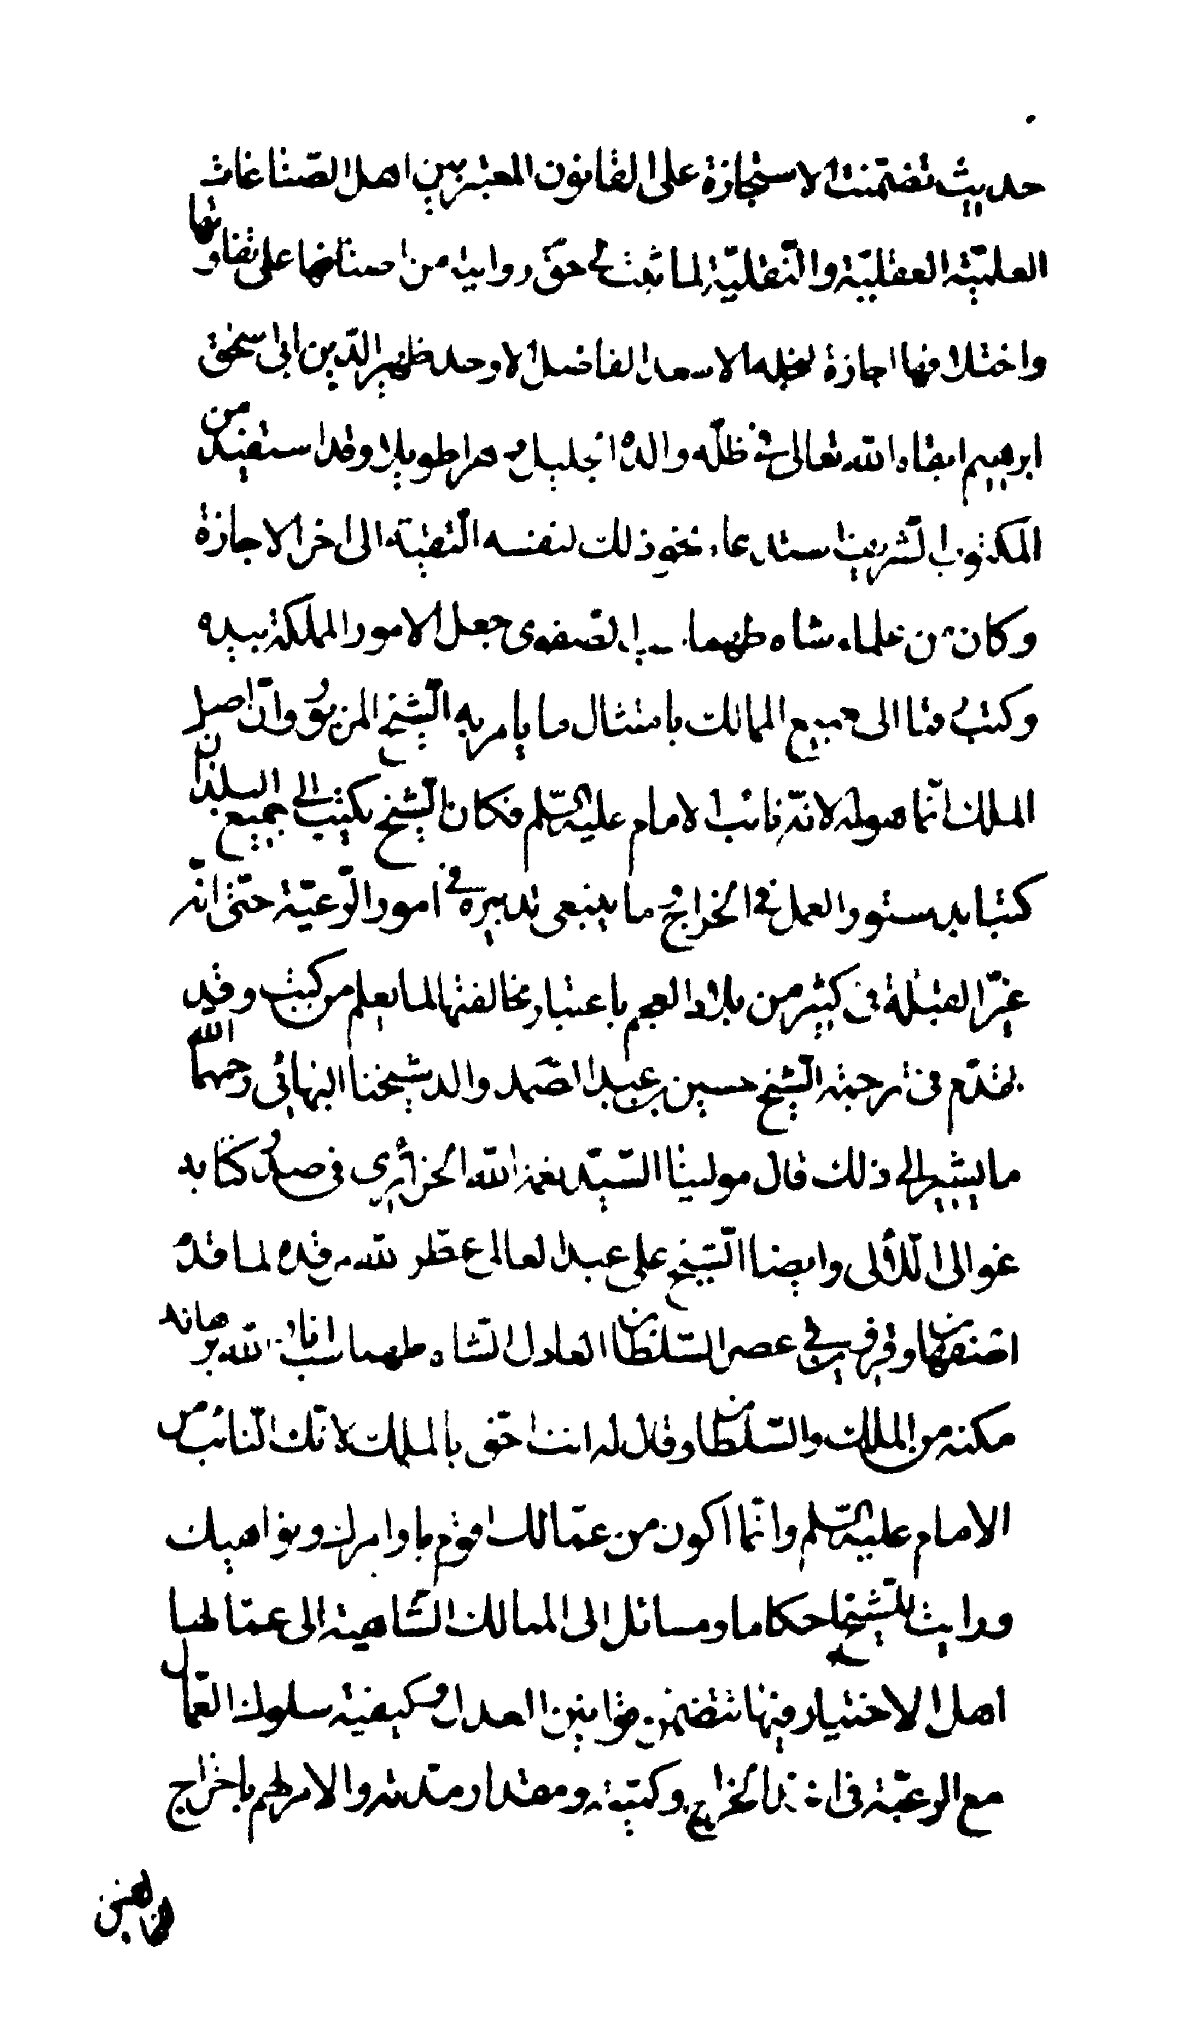 حديث تضمنت الاستجازة على القانون المعتبر بين اهل الصناعات
العلميّة العقليّة والنّقليّة لما ثبت لى حقّ روايته من اصنافها على تفاوتها
واختلافها اجازة لنجله الاسعد الفاضل الاوحد ظهير الدّين ابى اسحق
ابرهيم ابقاه الله تعالى فى ظلّه والده الجليل دهرا طويلا وقد استفيد من
المكتوب الشريف استدعاء نحو ذلك لنفسه النّقيّة الى اخر الاجازة
وكان من علماء شاه طهماسب الصفوى جعل الامور المملكة بيده
وكتب رقما الى جميع الممالك بامتثال ما يامر به الشّيخ المزبور وانّ اصل
الملك انّما هو له لانّه نائب الامام عليه السّلم فكان الشّيخ يكتب الى جميع البلدان
كتبا بدستور العمل فى الخراج وما ينبغى تدبيره فى امور الرّعيّة حتّى انّه
غيّر القبلة فى كثير من بلاد العجم باعتبار مخالفتها لما يعلم من كتب وقد
تقدّم فى ترجمة الشّيخ حسين بن عبد الصّمد والد شيخنا البهائى رحمهما الله
ما يشير الى ذلك قال مولينا السّيّد نعمة الله الجزائرى فى صدر كتابه
غوالى اللّألى وايضا الشّيخ على عبد العالى عطّر الله مرقده لما قدم
اصفهان وقزوين فى عصر السّلطان العادل الشّاه طهماسب انار الله برهانه
مكنه من الملك والسّلطان وقال له انت احقّ بالملك لانّك النّائب من
الامام عليه السّلم وانّما اكون من عمّالك اقوم باوامرك ونواهيك
ورايت للشّيخ احكاما ومسائل الى الممالك الشّاهية الى عمّالها
اهل الاختيار فيها تتضمن قوانين العدل وكيفية سلوك العمّال
مع الرعيّة فى اخذ الخراج وكميّته ومقدار مدّته والامر لهم باخراج
المخالفين